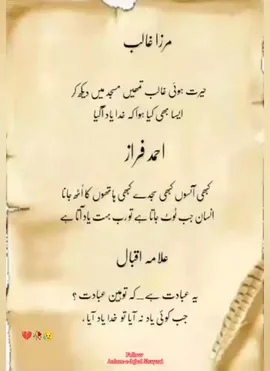 مرزا غالب
حیرت ہوئی غالب تمھیں مسجد میں دیکھ کر
ایسا بھی کیا ہوا کہ خدا یاد آگیا
احمد فراز
کبھی آنسوں کبھی سجدے کبھی ہاتھوں کا اُٹھ جانا
انسان جب ٹوٹ جاتا ہے تو رب بہت یاد آتا ہے
علامہ اقبال
یہ عبادت ہے_کہ توہین عبادت ؟
جب کوئی یاد نہ آیا تو خدا یاد آیا .
Follow